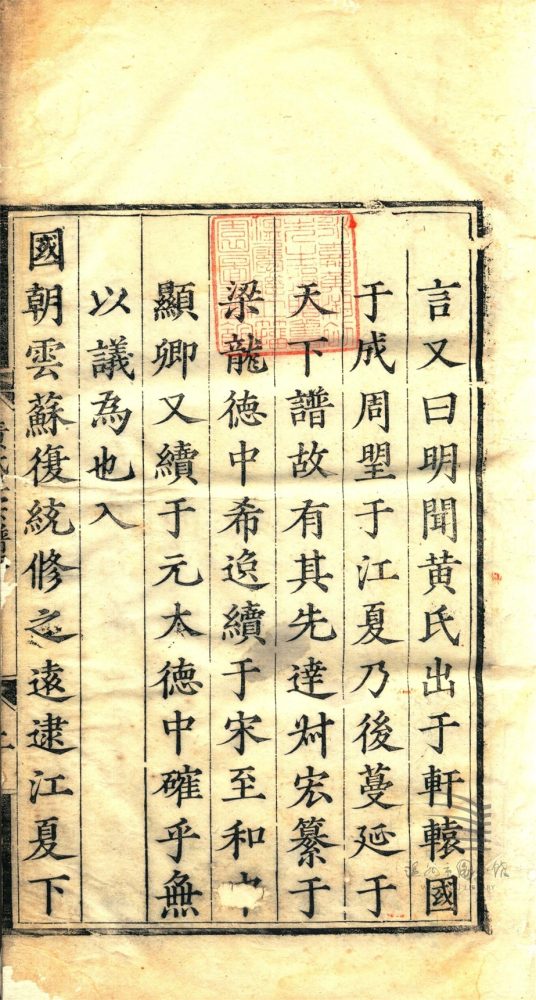 言又曰明聞黄氏出于軒轅國
于成周朢于江夏乃後蔓延于
天下譜故有其先達尗宏纂于
梁龍德中希逸續于宋至和中
顯卿又續于元大德中確乎無
以議為也入
國朝雲蘇復統修之遠逮江夏下